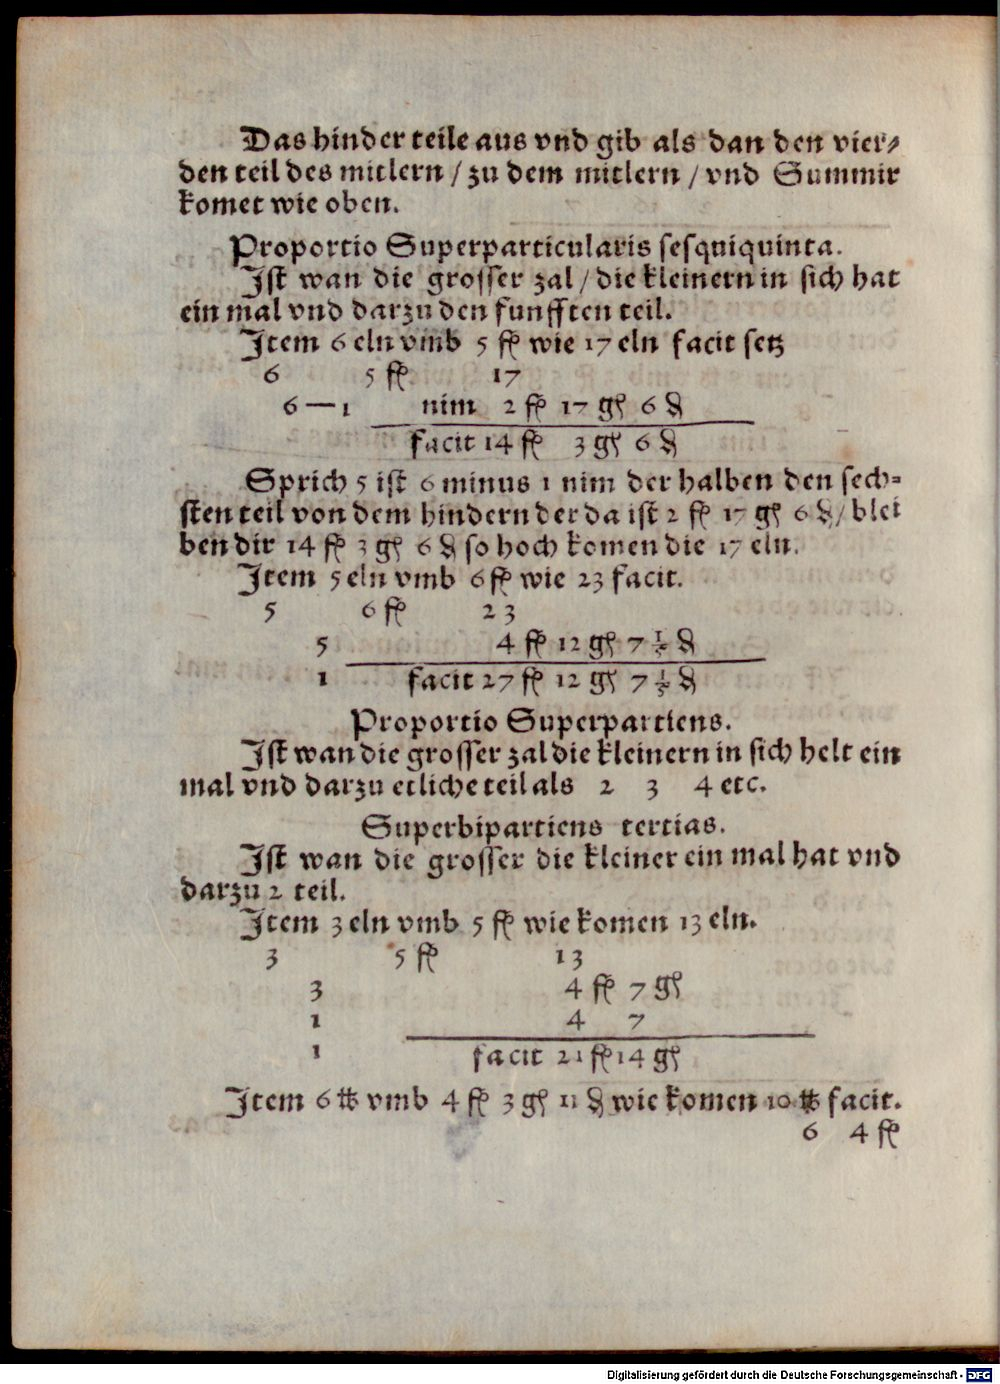 Das hinder teile aus vnd gib als dan den vier⸗
den teil des mitlern / zu dem mitlern / vnd Summir
komet wie oben.
Proportio Superparticularis sesquiquinta.
Ist wan die grosser zal / die kleinern in sich hat
ein mal vnd darzu den funfften teil.
Item 6 eln vmb 5 fl wie 17 eln facit setz
6 5 fl 17
6 — 1 nim 2 fl 17 gl 6 ₰
facit 14 fl 3 gl 6 ₰
Sprich 5 ist 6 minus 1 nim der halben den sech⸗
sten teil von dem hindern der da ist 2 fl 17 gl 6 ₰ / blei
ben dir 14 fl 3 gl 6 ₰ so hoch komen die 17 eln.
Item 5 eln vmb 6 fl wie 23 facit.
5 6 fl 23
5 4 fl 12 gl 7 1/5 ₰
1 facit 27 fl 12 gl 7 1/5 ₰
Proportio Superpartiens.
Ist wan die grosser zal die kleinern in sich helt ein
mal vnd darzu etliche teil als 2 3 4 etc.
Superbipartiens tertias.
Ist wan die grosser die kleiner ein mal hat vnd
darzu 2 teil.
Item 3 eln vmb 5 fl wie komen 13 eln.
3 5 fl 13
3 4 fl 7 gl
1 4 7
1 facit 21 fl 14 gl
Item 6 ℔ vmb 4 fl 3 gl 11 ₰ wie komen 10 ℔ facit.
6 4 fl
Digitalisierung gefördert durch die Deutsche Forschungsgemeinschaft - DFG